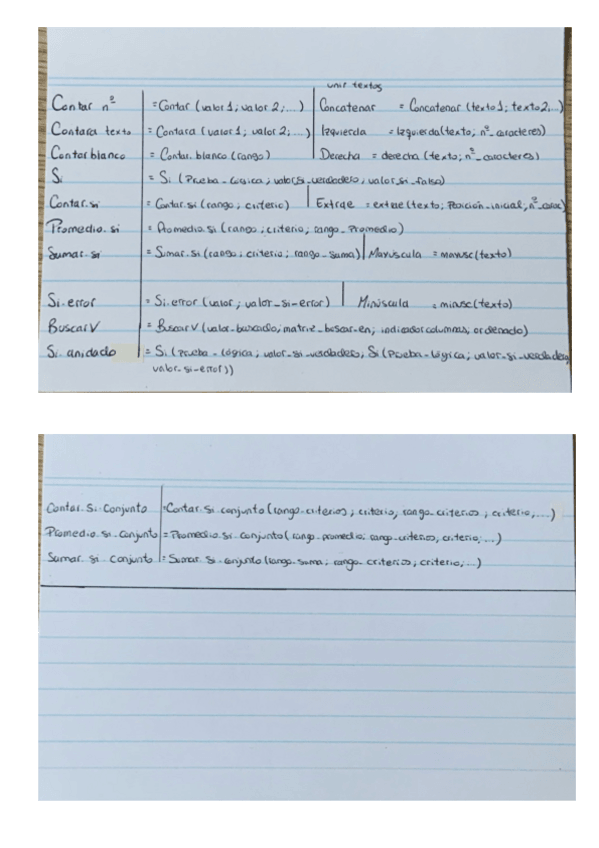 unir textos
Contar nº = Contar (valor 1; valor 2; ...) Concatenar = Concatenar (texto 1; texto 2,..)
Contara texto = Contara (valor 1; valor 2; ...) Izquierda = Izquierda (texto; nº_caracteres)
Contar blanco = Contar. blanco (rango) Derecha = derecha (texto; nº_caracteres)
Si = Si (Prueba_lógica; valor_si_verdadero; valor_si_falso)
Contar.si = Contar.si (rango; criterio) Extrae = extrae (texto; Posición_inicial; nº_carac)
Promedio.si = Promedio.si (rango; criterio; rango_Promedio)
Sumar.si = Sumar.si (rango; criterio; rango_suma) Mayúscula = mayusc (texto)
Si.error = Si.error (valor; valor_si_error) Minúscula = minusc (texto)
BuscarV = BuscarV (valor_buscado; matriz_buscar_en; indicador columnas; ordenado)
Si anidado = Si (Prueba_Lógica; valor_si_verdadero; Si (Prueba_Lógica; valor_si_verdadero;
valor_si_error))
Contar. Si Conjunto = Contar. Si conjunto (rango_criterios; criterio; rango_criterios; criterio;...)
Promedio.si_conjunto = Promedio. si. conjunto (rango_promedio; rango_criterios; criterio; ...)
Sumar. si conjunto = Sumar. Si conjunto (rango_suma; rango_criterios; criterio; ...)